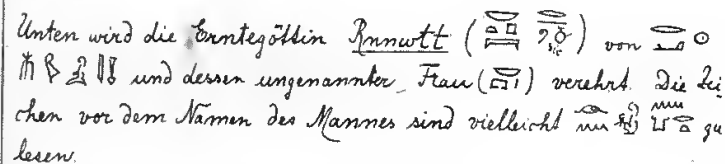 Unten wird die Erntegöttin Rnnwtt ( sic ) von
und dessen ungenannter Frau ( ) verehrt. Die Zei-
chen vor dem Namen des Mannes sind vielleicht zu
lesen.